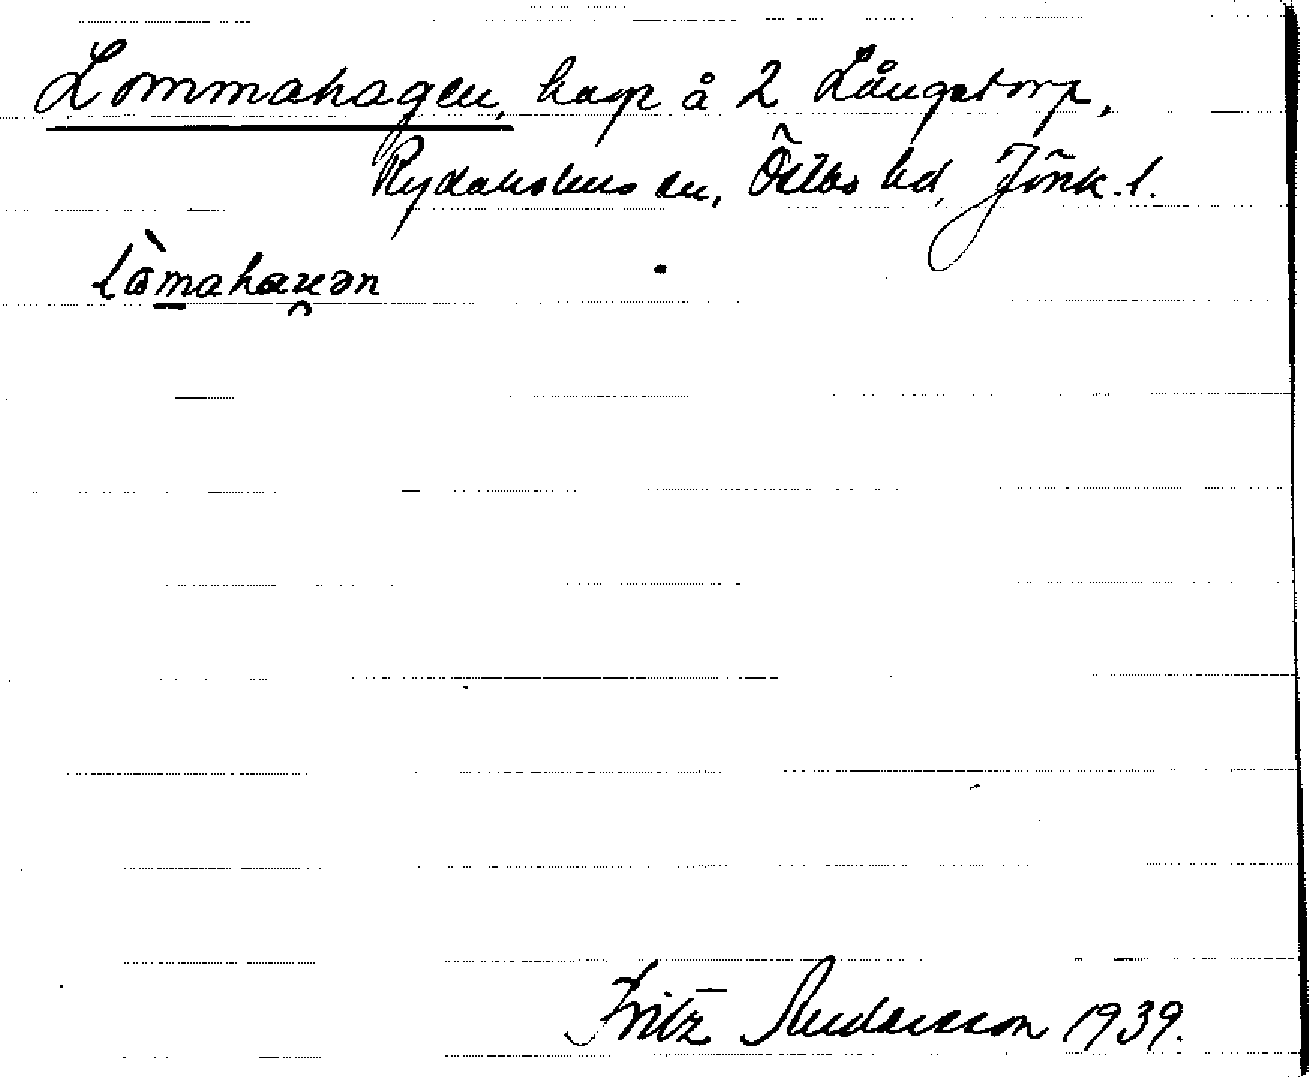 Lommahagen, hage å 2 Långstorp,
Rydaholms sn, Östbo hd, Jönk. l.
Fritz Andersson 1939.